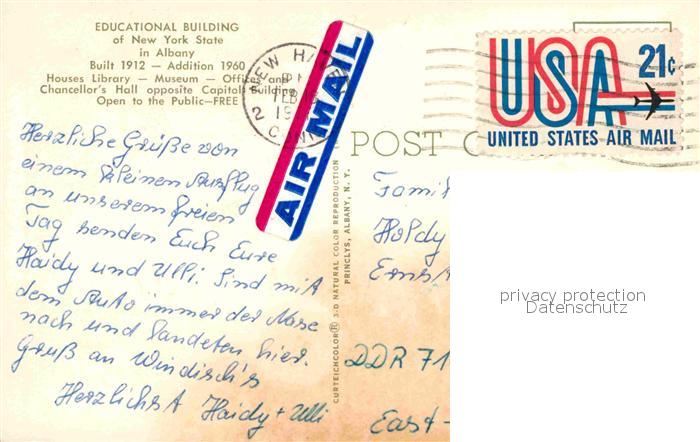 EDUCATIONAL BUILDING
of New York State
in Albany
Built 1912 — Addition 1960
Houses Library — Museum — Offices and
Chancellor's Hall opposite Capitol Building
Open to the Public—FREE
NEW HA
FEB
19
CONN
AIR MAIL
USA 21c
UNITED STATES AIR MAIL
POST C
Herzliche Grüße von
einem kleinen Ausflug
an unserem freien
Tag senden Euch Eure
Haidy und Ulli. Sind mit
dem Auto immer der Nase
nach und landeten hier.
Gruß an Windisch's
Herzlichst Haidy + Ulli
CURTEICHCOLOR® 3-D NATURAL COLOR REPRODUCTION
PRINCLYS, ALBANY, N. Y.
Famil
Holdy
Ernst
DDR 71
East-
privacy protection
Datenschutz